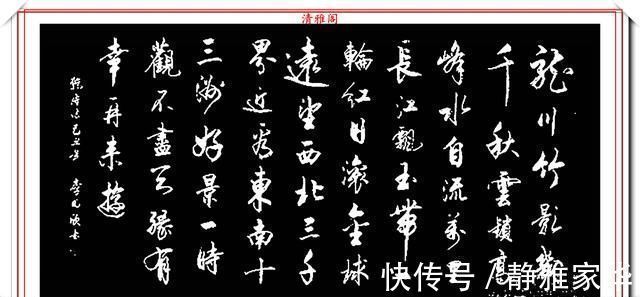 清雅阁
龍川竹影幾
千秋雲鎖高
峰水自流萬里
長江飄玉帶一
輪紅日滾金球
遠望西北三千
界近東南十
三洲好景一時
觀不盡天緣有
幸再來遊
己丑
快传号／静雅家